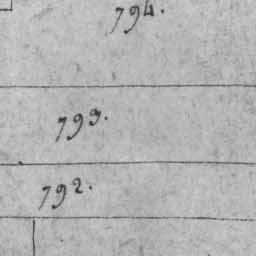 794.
793.
792.